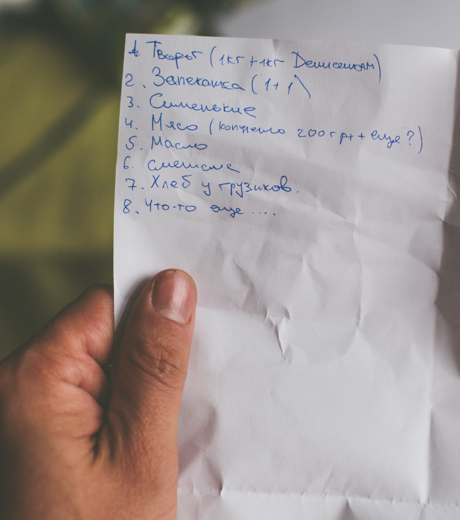 1. Творог (1кг + 1кг Денисенкам)
2. Запеканка (1+1)
3. Синенькие
4. Мясо (копчено 200гр + еще?)
5. Масло
6. Сметана
7. Хлеб у грузинов.
8. Что-то еще ....